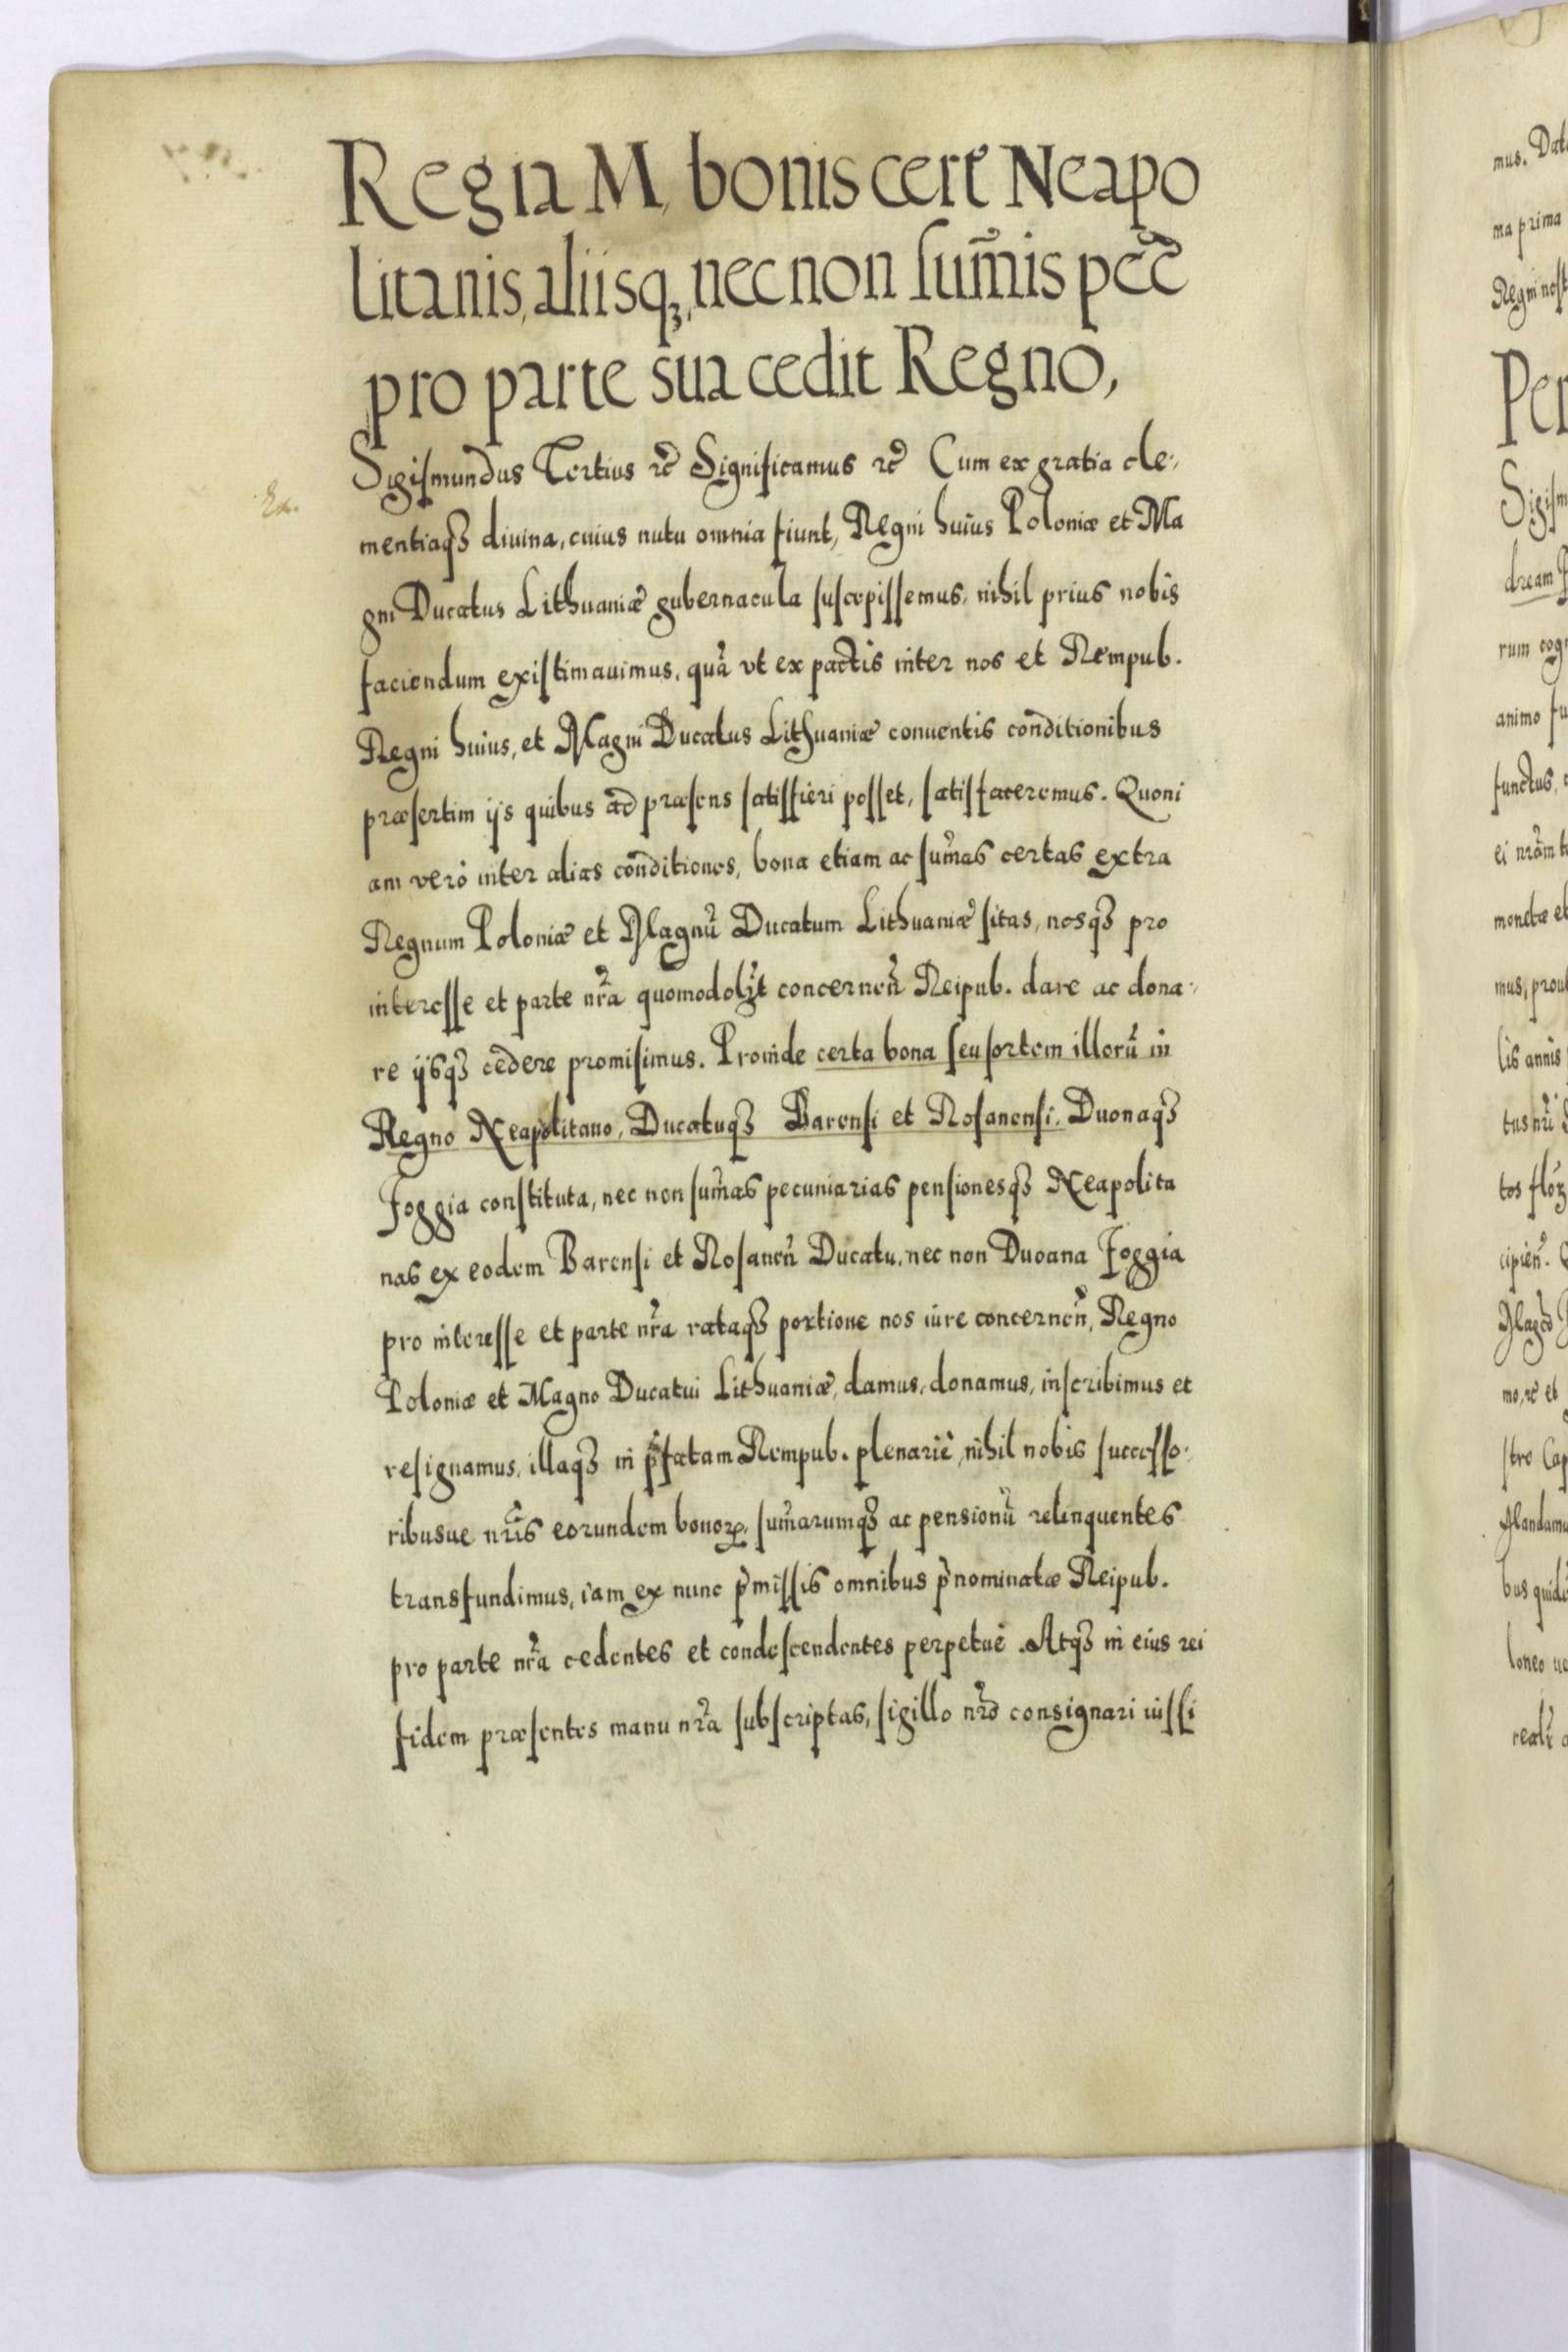 Regia M, bonis certẽ Neapo
litanis, aliisqꝫ, nec non sum̃is pec̃
pro parte sua cedit Regno,
Sigismundus Tertius rc̃ Significamus rc̃ Cum ex gratia cle-
Ex.
mentiaqꝫ diuina, cuius nutu omnia fiunt, Regni huius Poloniæ et Ma
gni Ducatus Lithuaniæ gubernacula suscepissemus, nihil prius nobis
faciendum existimauimus, quã vt ex pactis inter nos et Rempub.
Regni huius, et Magni Ducatus Lithuaniæ conuentis conditionibus
præsertim ijs quibus ad præsens satisfieri posset, satisfaceremus. Quoni
am verò inter alias conditiones, bona etiam ac sum̃as certas extra
Regnum Poloniæ et Magnũ Ducatum Lithuaniæ sitas, nosqꝫ pro
interesse et parte nr̃a quomodolꝫt concernen̄ Reipub. dare ac dona-
re ijsqꝫ cedere promisimus. Proinde certa bona seu sortem illorũ in
Regno Neapolitano, Ducatuqꝫ Barensi et Rosanensi, Duonaqꝫ
Foggia constituta, nec non sum̃as pecuniarias pensionesqꝫ Neapolita
nas ex eodem Barensi et Rosanen̄ Ducatu, nec non Duoana Foggia
pro interesse et parte nr̃a rataqꝫ portione nos iure concernen̄, Regno
Poloniæ et Magno Ducatui Lithuaniæ, damus, donamus, inscribimus et
resignamus, illaqꝫ in p̃fatam Rempub. plenariè, nihil nobis successo-
ribusue nr̃is eorundem bonoꝝ, sum̃arumqꝫ ac pensionũ relinquentes
transfundimus, iam ex nunc p̃missis omnibus p̃nominatæ Reipub.
pro parte nr̃a cedentes et condescendentes perpetuè. Atqꝫ in eius rei
fidem præsentes manu nr̃a subscriptas, sigillo nr̃o consignari iussi
mus. Dat
ma prima
Regni nost
Per
Sigism
dream P
rum cog
animo fu
functus,
ei nr̃am
monetæ et
mus, prou
lis annis
tus nr̃i
tos flor̃
cipien̄.
Magc̃o
mo, rc̃ et
stro Cap
Mandamu
bus quide
loneo
realr̃